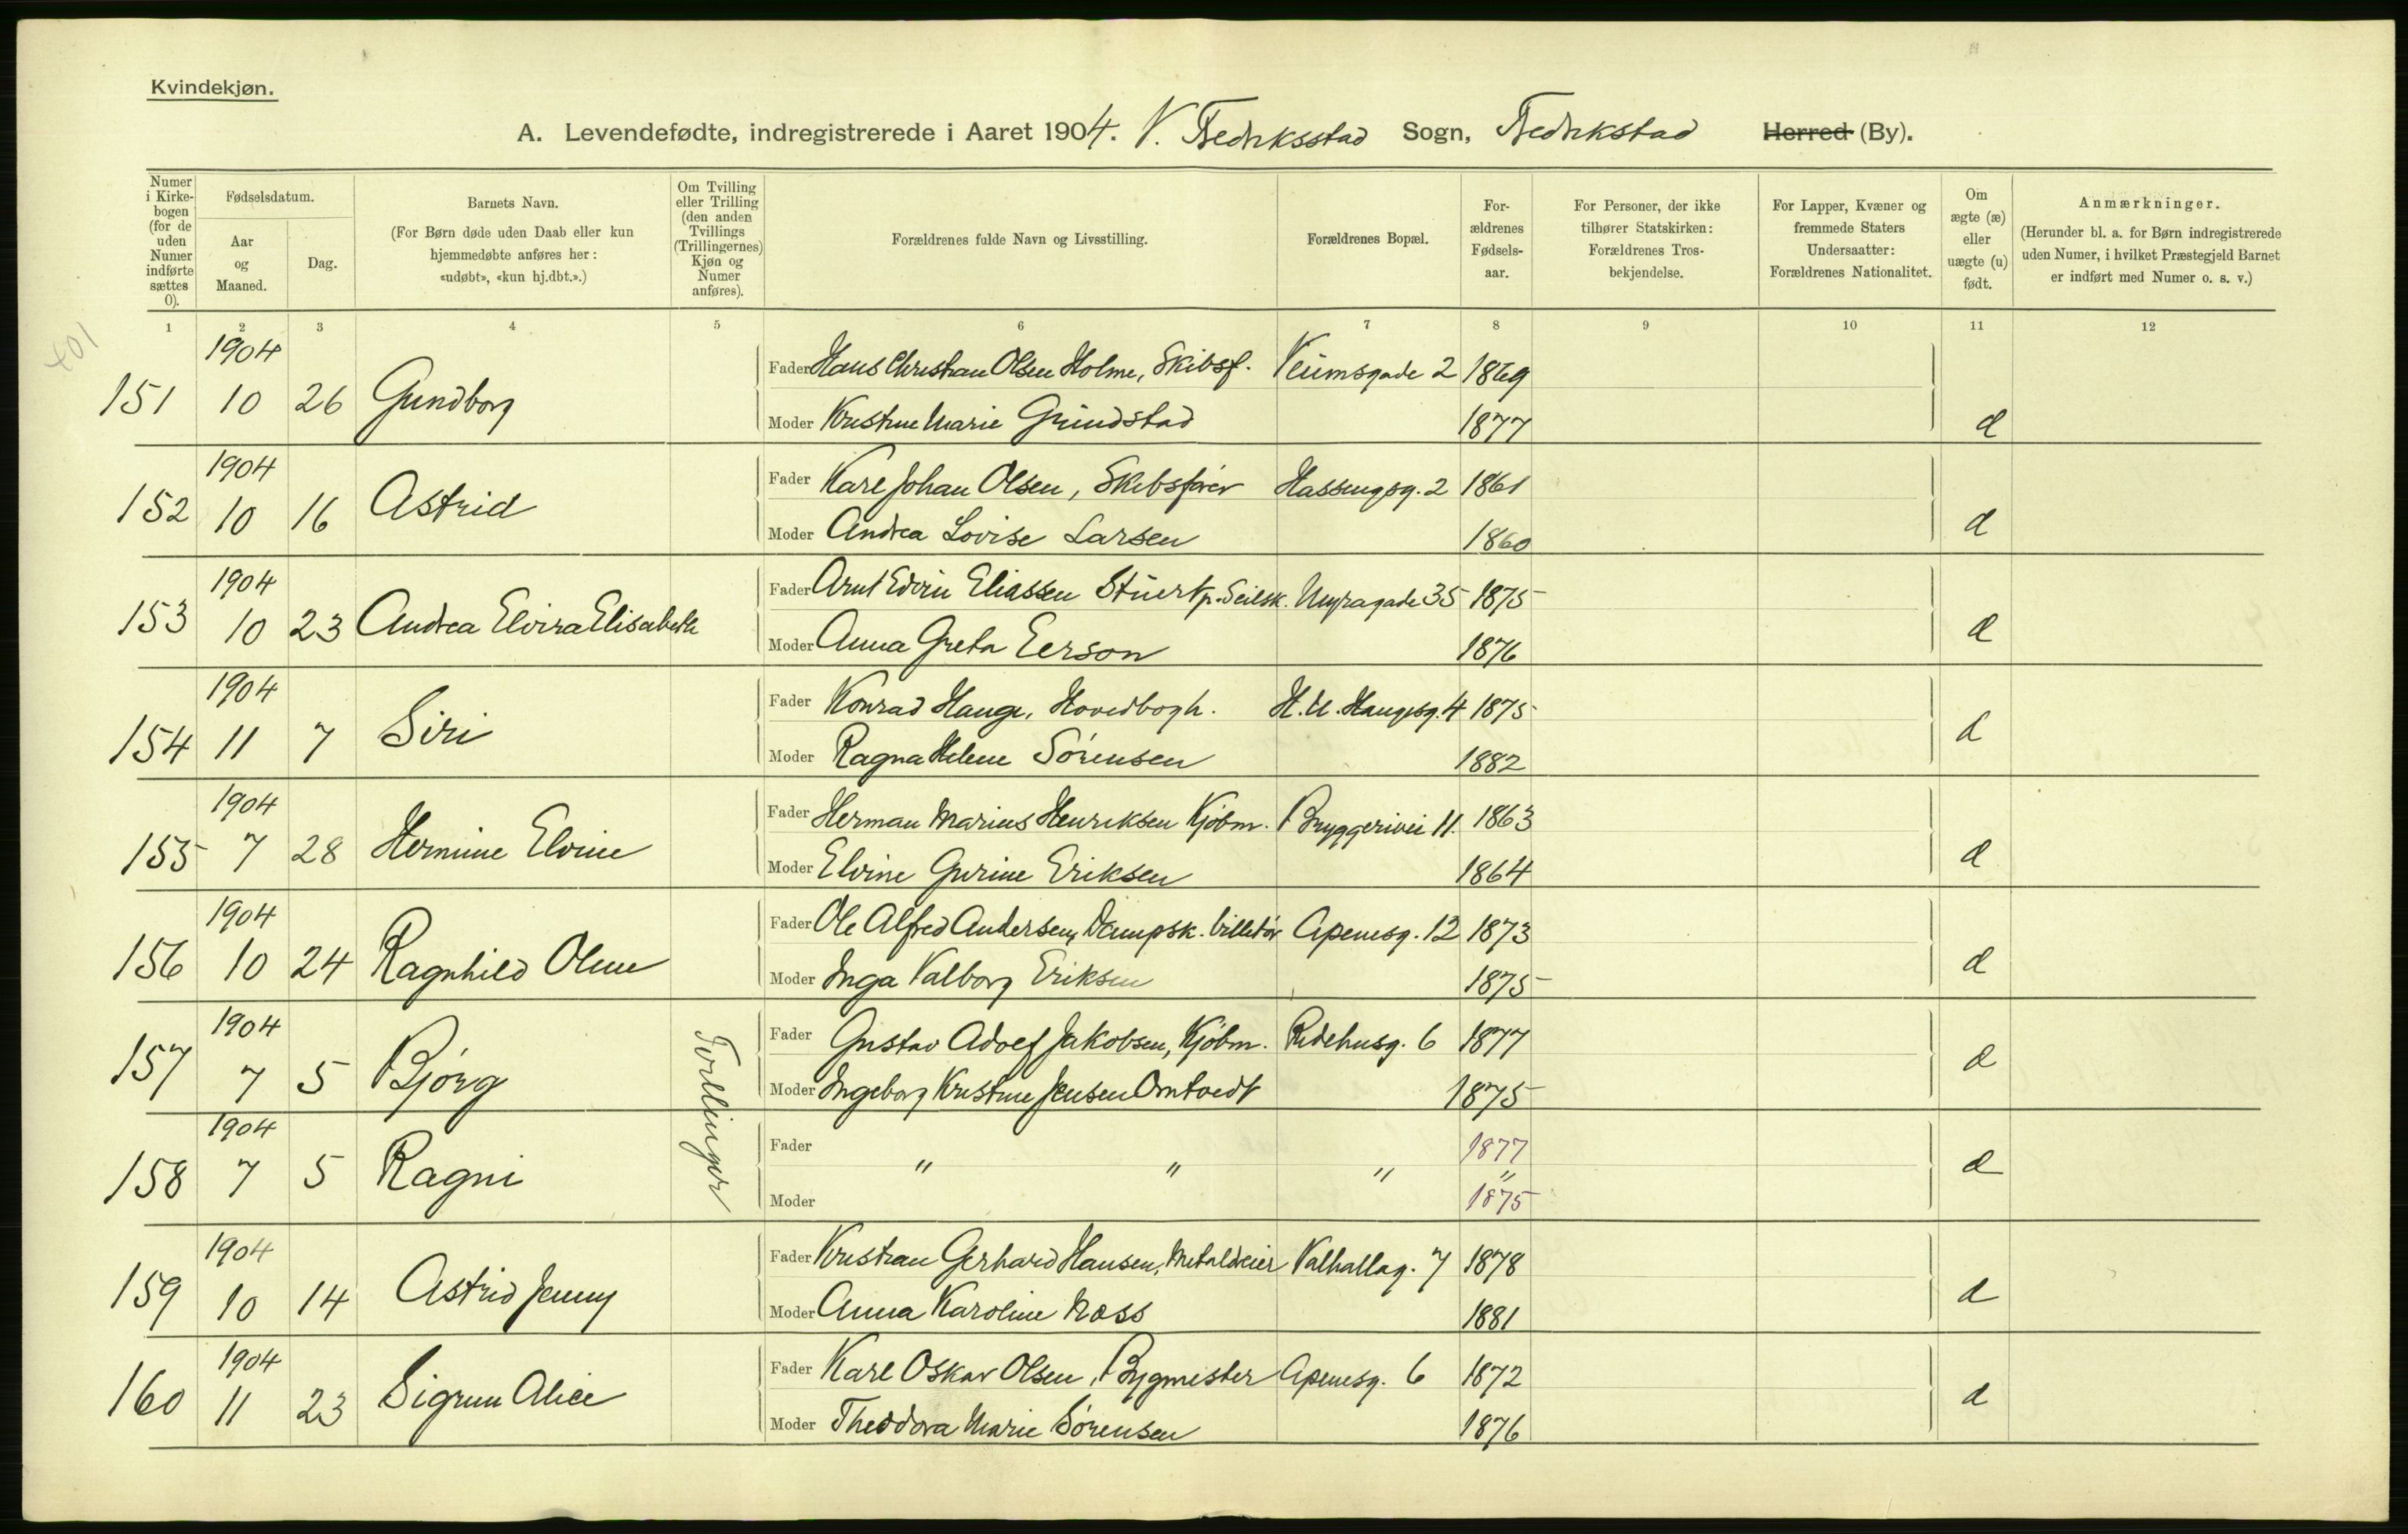 Kvindekjøn.
A. Levendefødte, indregistrerede i Aaret 1904. V. Fredriksstad Sogn, Fredrikstad Herred (By).
Numer i Kirkebogen (for de uden Numer indførte sættes 0).
Fødselsdatum.
Aar og Maaned.
Dag.
Barnets Navn.
(For Børn døde uden Daab eller kun hjemmedøbte anføres her: «udøbt», «kun hj.dbt.».)
Om Tvilling eller Trilling (den anden Tvillings (Trillingernes) Kjøn og Numer anføres).
Forældrenes fulde Navn og Livsstilling.
Forældrenes Bopæl.
Forældrenes Fødselsaar.
For Personer, der ikke tilhører Statskirken: Forældrenes Trosbekjendelse.
For Lapper, Kvæner og fremmede Staters Undersaatter: Forældrenes Nationalitet.
Om ægte (æ) eller uægte (u) født.
Anmærkninger.
(Herunder bl. a. for Børn indregistrerede uden Numer, i hvilket Præstegjeld Barnet er indført med Numer o. s. v.)
1 2 3 4 5 6 7 8 9 10 11 12
1904
Fader Hans Christian Olsen Holme, Skibsf. Veumsgade 2 1869
151 10 26 Gundborg
Moder Kristine Marie Grimdstad 1877 æ
1904
Fader Karl Johan Olsen, Skibsfører Hassingsg. 2 1861
152 10 16 Astrid
Moder Andrea Lovise Larsen 1860 æ
1904
Fader Arnt Edvin Eliassen Stuert p. Seilsk. Myragade 35 1875
153 10 23 Andrea Elvira Elisabeth æ
Moder Anna Greta Eerson 1876
1904
Fader Konrad Hauge, Hovedbogh. H. N. Haugesg. 4 1875
154 11 7 Siri æ
Moder Ragna Helene Sørensen 1882
1904
Fader Herman Marius Henriksen Kjøbm. Bryggerivei 11. 1863
155 7 28 Hermine Elvine æ
Moder Elvine Gurine Eriksen 1864
1904
Fader Ole Alfred Andersen, Dampsk. billetør Apenesg. 12 1873
156 10 24 Ragnhild Oline æ
Moder Inga Valborg Eriksen 1875
1904
Fader Gustav Adolf Jakobsen, Kjøbm. Ridehusg. 6 1877
157 7 5 Bjørg Tvillinger æ
Moder Ingeborg Kristine Jensen Omtvedt 1875
1904
Fader 1877
158 7 5 Ragni " " " " æ
Moder 1875
1904
Fader Kristian Gerhard Hansen, Metaldreier Valhallag. 7 1878
159 10 14 Astrid Jenny æ
Moder Anna Karoline Næss 1881
1904
Fader Karl Oskar Olsen, Bygmester Apenesg. 6 1872
160 11 23 Sigrun Alice æ
Moder Theodora Marie Sørensen 1876